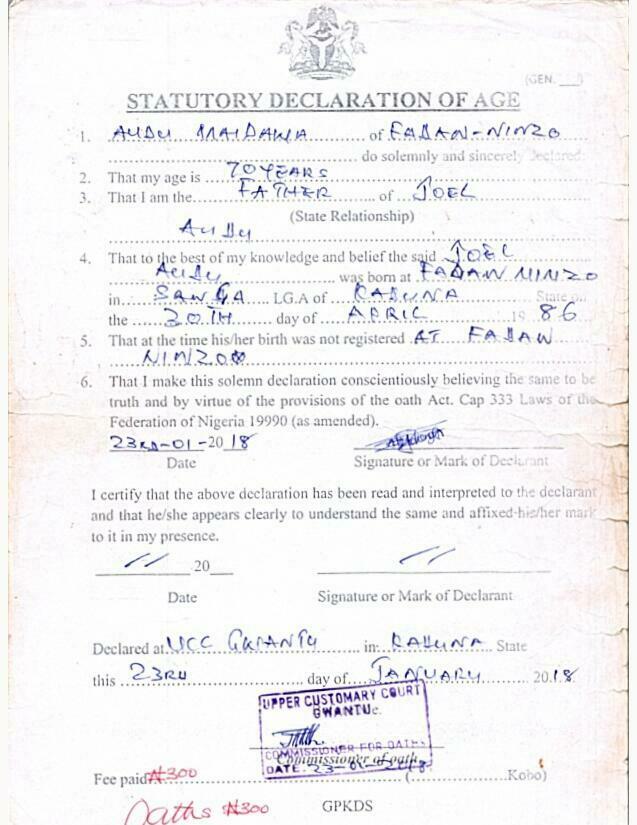 (GEN. ___)
STATUTORY DECLARATION OF AGE
1. AUDU MAIDAWA of FADAN-NINZO
do solemnly and sincerely declared:
2. That my age is 70 YEARS
3. That I am the FATHER of JOEL
(State Relationship)
AUDU
4. That to the best of my knowledge and belief the said JOEL
AUDU was born at FADAN NINZO
in SANGA L.G.A of KADUNA State on
the 30TH day of APRIL 19 86
5. That at the time his/her birth was not registered AT FADAN
NINZO
6. That I make this solemn declaration conscientiously believing the same to be
truth and by virtue of the provisions of the oath Act. Cap 333 Laws of the
Federation of Nigeria 19990 (as amended).
23RD-01-2018
Date Signature or Mark of Declarant
I certify that the above declaration has been read and interpreted to the declarant
and that he/she appears clearly to understand the same and affixed his/her mark
to it in my presence.
// 20 //
Date Signature or Mark of Declarant
Declared at UCC GWANTU in: KADUNA State
this 23RD day of JANUARY 2018
UPPER CUSTOMARY COURT
GWANTU
COMMISSIONER FOR OATHS
Commissioner of oath
DATE: 23-01-2018
Fee paid ₦300 ( Kobo)
Oaths ₦300
GPKDS